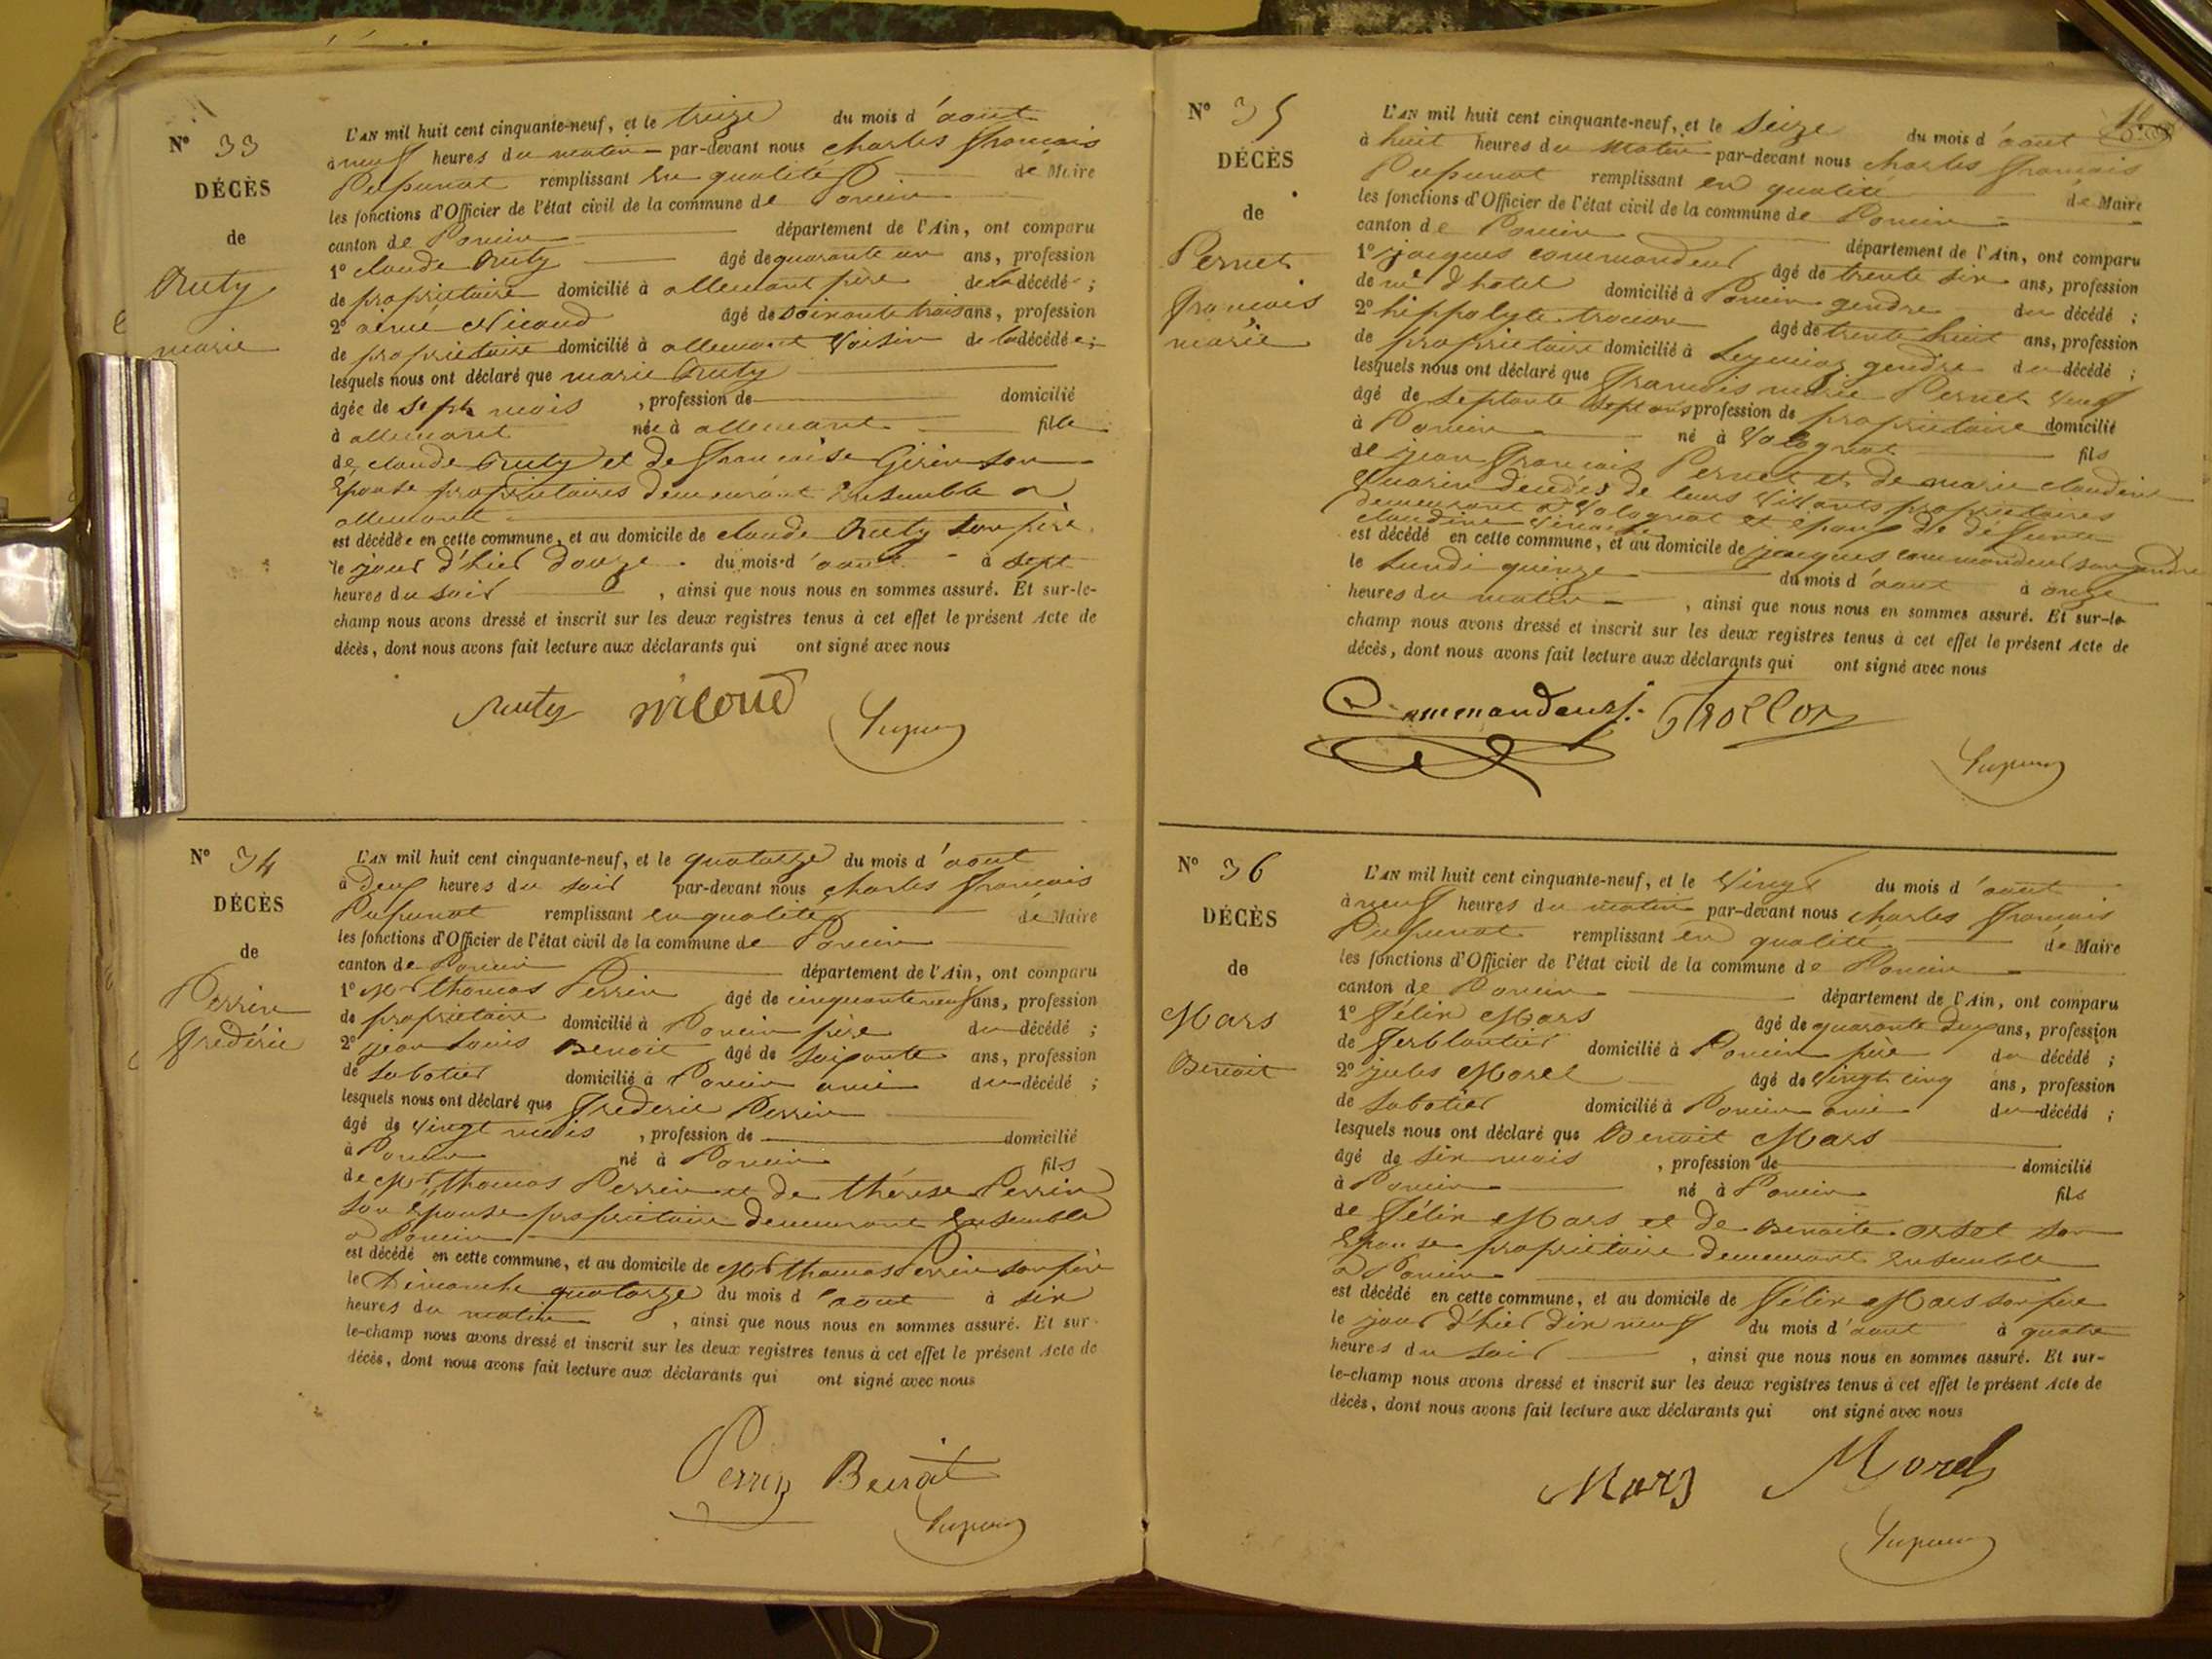 N° 33
DÉCÈS
de
Ruty
marie
L'AN mil huit cent cinquante-neuf, et le treize du mois d'aout
à neuf heures du matin par-devant nous charles francois
Pupunat remplissant en qualité de Maire
les fonctions d'Officier de l'état civil de la commune de Poncin
canton de Poncin département de l'Ain, ont comparu
1° claude Ruty âgé de quarante un ans, profession
de propriétaire domicilié à allement père de la décédée ;
2° aimé Nicoud âgé de soixante trois ans, profession
de propriétaire domicilié à allement voisin de la décédée ;
lesquels nous ont déclaré que marie Ruty
âgée de sept mois , profession de domicilié
à allement née à allement fille
de claude Ruty et de francoise Girin son
épouse propriétaires demeurant ensemble a
allement
est décédée en cette commune, et au domicile de claude Ruty son père
le jour d'hier douze du mois d'aout à sept
heures du soir , ainsi que nous nous en sommes assuré. Et sur-le-
champ nous avons dressé et inscrit sur les deux registres tenus à cet effet le présent Acte de
décès, dont nous avons fait lecture aux déclarants qui ont signé avec nous
Ruty nicoud Pupunat
N° 34
DÉCÈS
de
Perrin
fréderic
L'AN mil huit cent cinquante-neuf, et le quatorze du mois d'aout
à deux heures du soir par-devant nous charles francois
Pupunat remplissant en qualité de Maire
les fonctions d'Officier de l'état civil de la commune de Poncin
canton de Poncin département de l'Ain, ont comparu
1° Mr thomas Perrin âgé de cinquante neuf ans, profession
de propriétaire domicilié à Poncin père du décédé ;
2° jean louis Benoit âgé de soixante ans, profession
de sabotier domicilié à Poncin ami du décédé ;
lesquels nous ont déclaré que frederic Perrin
âgé de vingt mois , profession de domicilié
à Poncin né à Poncin fils
de Mr thomas Perrin et de thérèse Perrin
son épouse propriétaire demeurant ensemble
a Poncin
est décédé en cette commune, et au domicile de Mr thomas Perrin son père
le Dimanche quatorze du mois d'aout à six
heures du matin , ainsi que nous nous en sommes assuré. Et sur-
le-champ nous avons dressé et inscrit sur les deux registres tenus à cet effet le présent Acte de
décès, dont nous avons fait lecture aux déclarants qui ont signé avec nous
Perrin Benoit
Pupunat
N° 35
DÉCÈS
de
Pernet
francois
marie
L'AN mil huit cent cinquante-neuf, et le seize du mois d'aout
à huit heures du matin par-devant nous charles francois
Pupunat remplissant en qualité de Maire
les fonctions d'Officier de l'état civil de la commune de Poncin
canton de Poncin département de l'Ain, ont comparu
1° jacques commandeur âgé de trente six ans, profession
de me d'hotel domicilié à Poncin gendre du décédé ;
2° hippolyte âgé de trente huit ans, profession
de propriétaire domicilié à Leymiaz gendre du décédé ;
lesquels nous ont déclaré que francois marie Pernet veuf
âgé de septante sept ans profession de propriétaire domicilié
à Poncin né à Volognat fils
de jean francois Pernet et de marie claudine
décédés de leurs vivants propriétaires
demeurant a Volognat et epoux de défunte
claudine
est décédé en cette commune, et au domicile de jacques commandeur son gendre
le lundi quinze du mois d'aout à onze
heures du matin , ainsi que nous nous en sommes assuré. Et sur-le-
champ nous avons dressé et inscrit sur les deux registres tenus à cet effet le présent Acte de
décès, dont nous avons fait lecture aux déclarants qui ont signé avec nous
Commandeur j.
Pupunat
N° 36
DÉCÈS
de
Mars
Benoit
L'AN mil huit cent cinquante-neuf, et le vingt du mois d'aout
à neuf heures du matin par-devant nous charles francois
Pupunat remplissant en qualité de Maire
les fonctions d'Officier de l'état civil de la commune de Poncin
canton de Poncin département de l'Ain, ont comparu
1° félix Mars âgé de quarante deux ans, profession
de ferblantier domicilié à Poncin père du décédé ;
2° jules Morel âgé de vingt cinq ans, profession
de sabotier domicilié à Poncin ami du décédé ;
lesquels nous ont déclaré que Benoit Mars
âgé de six mois , profession de domicilié
à Poncin né à Poncin fils
de félix Mars et de Benoite orset son
épouse propriétaire demeurant ensemble
a Poncin
est décédé en cette commune, et au domicile de félix Mars son père
le jour d'hier dix neuf du mois d'aout à quatre
heures du soir , ainsi que nous nous en sommes assuré. Et sur-
le-champ nous avons dressé et inscrit sur les deux registres tenus à cet effet le présent Acte de
décès, dont nous avons fait lecture aux déclarants qui ont signé avec nous
Mars Morel
Pupunat